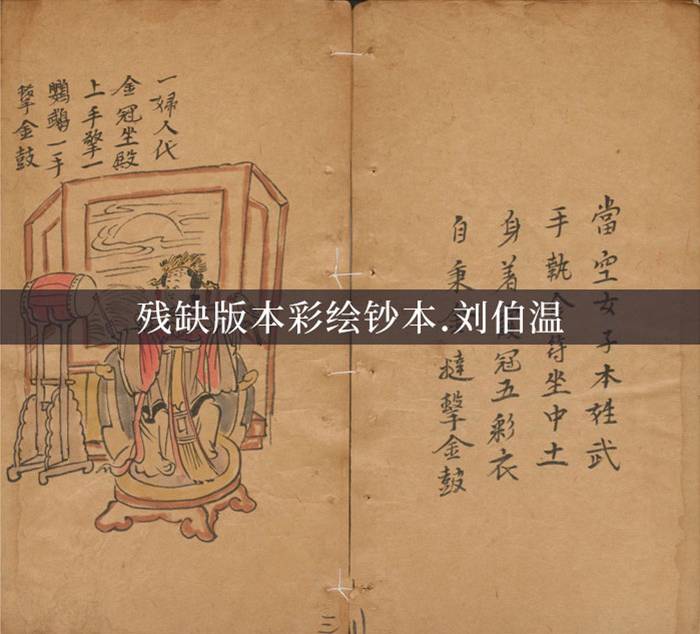 當空女子本姓武
手執坐中土
身着冠五彩衣
自秉撻擊金鼓
一婦人代
金冠坐殿
上手擎一
鸚鵡一手
金鼓
残缺版本彩绘钞本.刘伯温
三